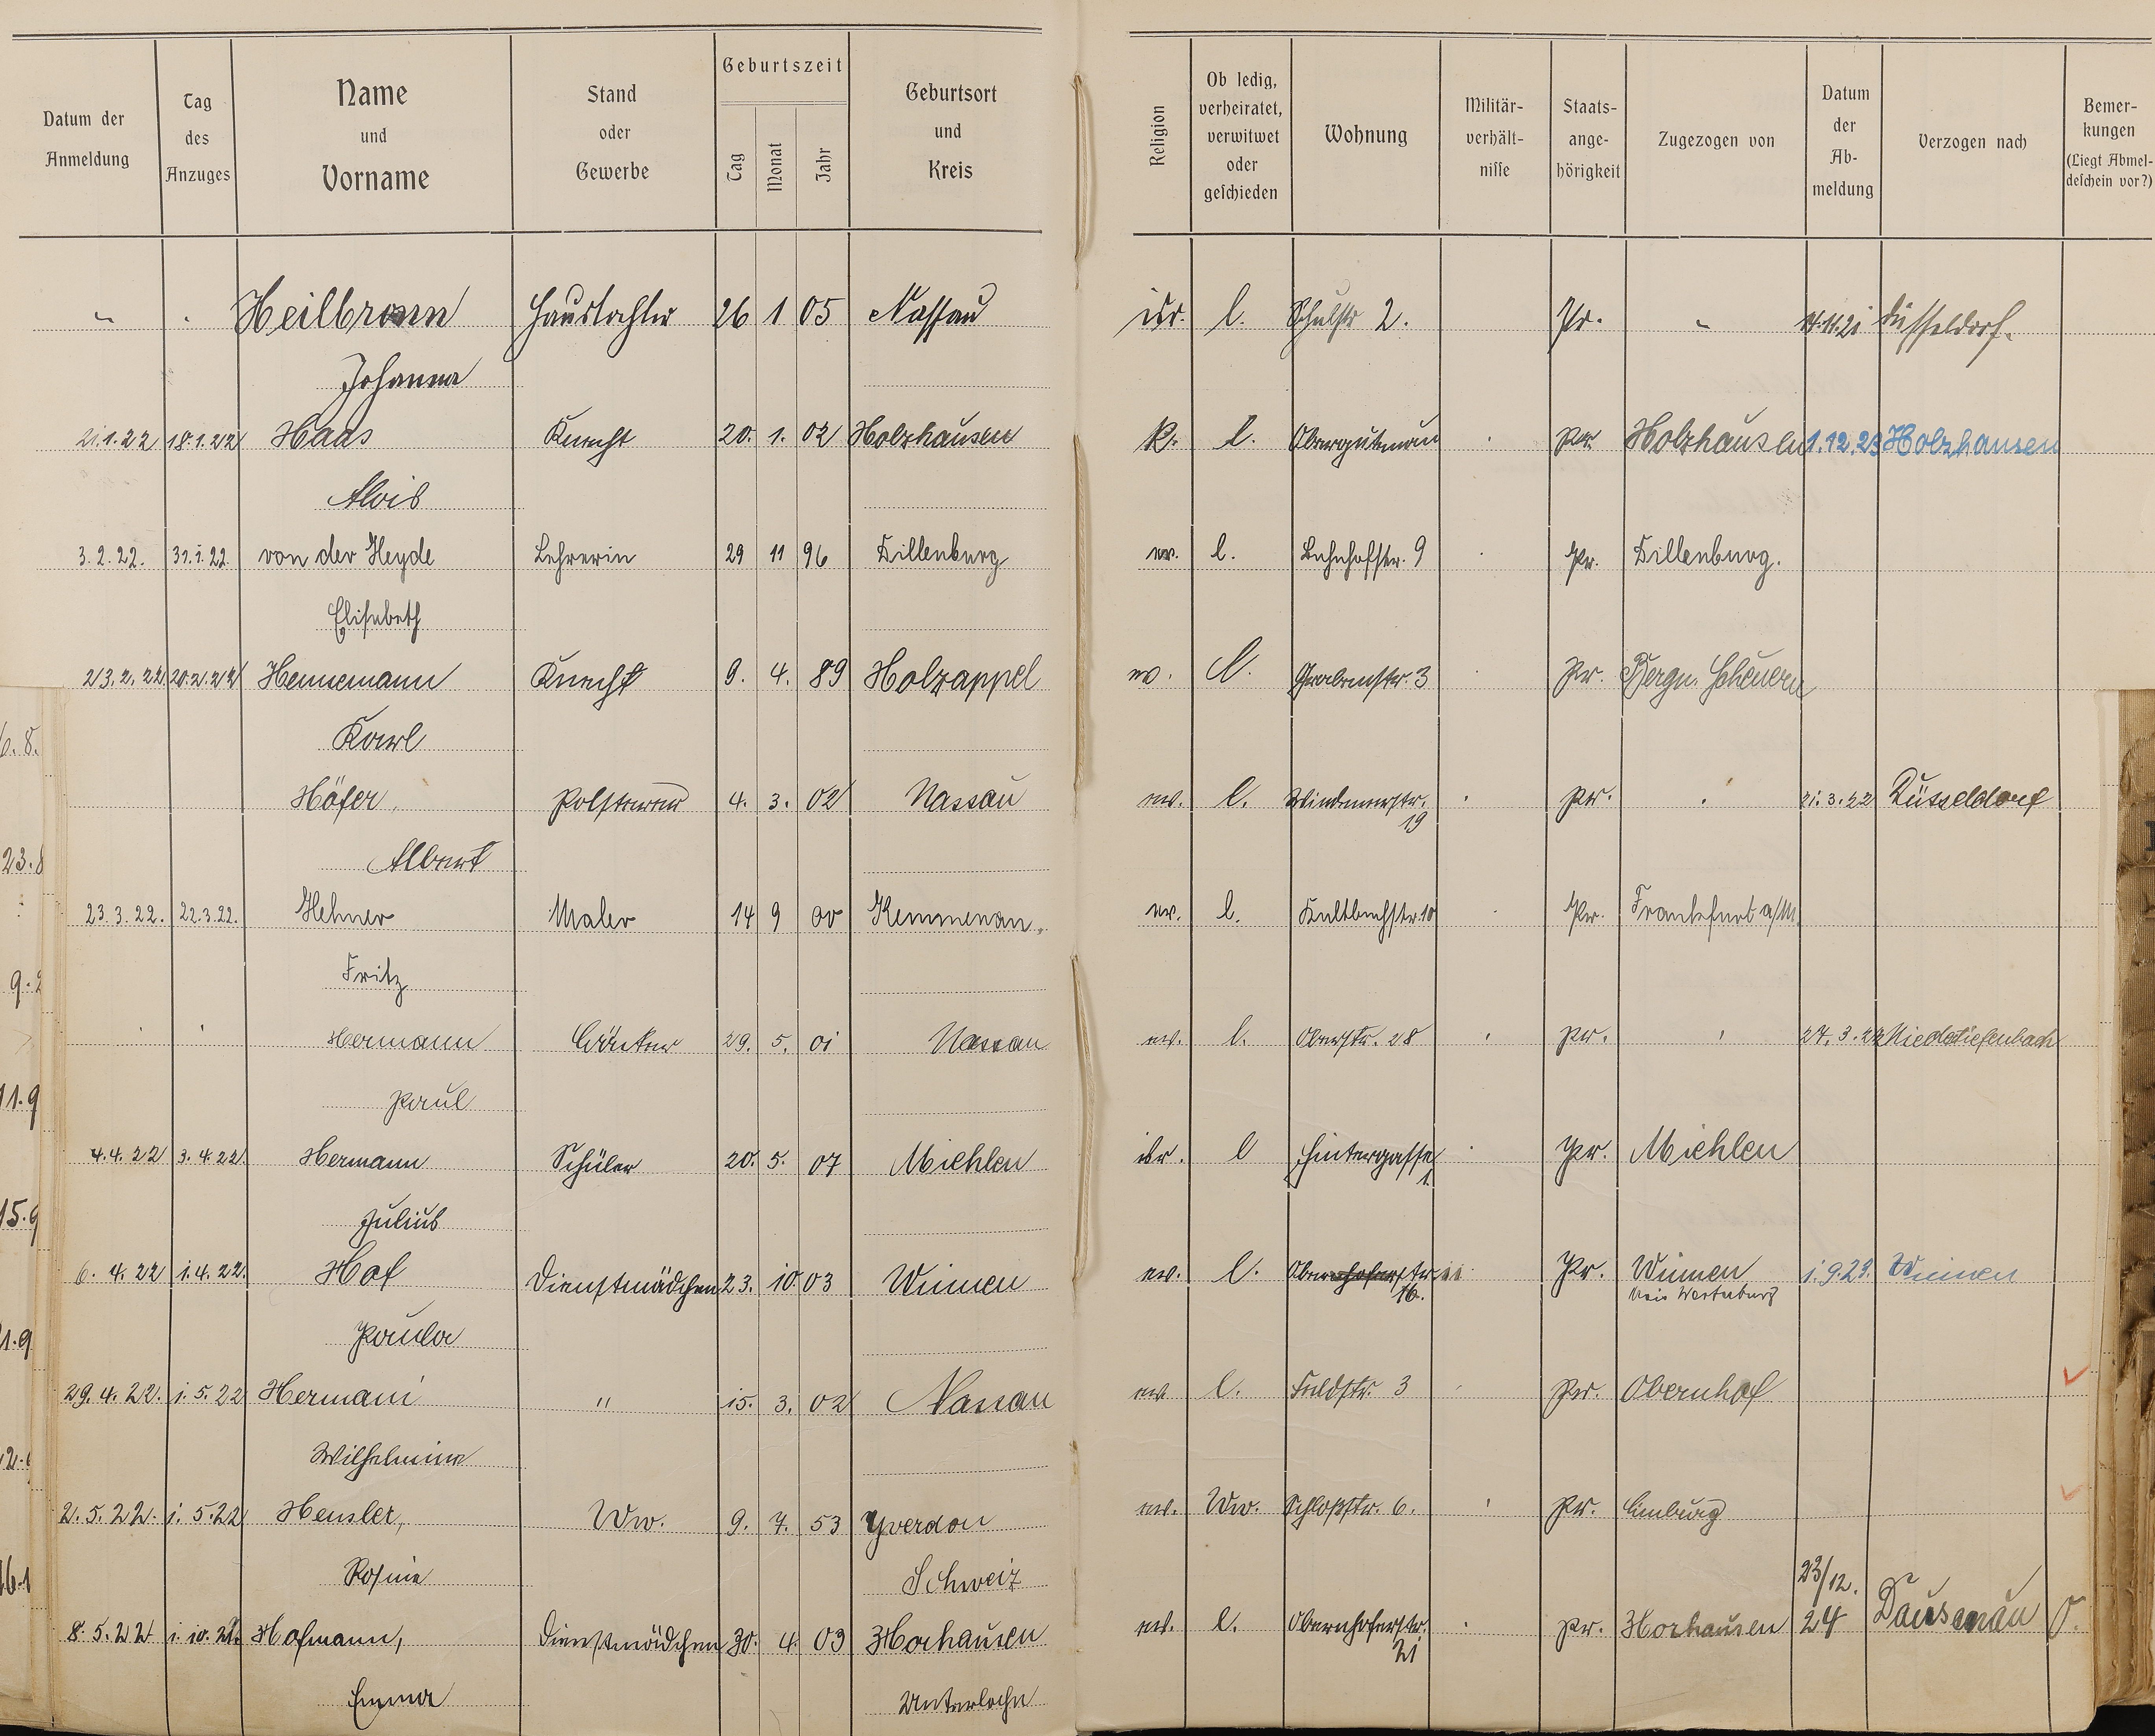 Datum der Anmeldung | Tag des Anzuges | Name und Vorname | Stand oder Gewerbe | Geburtszeit Tag Monat Jahr | Geburtsort und Kreis | Religion | Ob ledig, verheiratet, verwitwet oder geschieden | Wohnung | Militär-verhält-nisse | Staats-ange-hörigkeit | Zugezogen von | Datum der Ab-meldung | Verzogen nach | Bemer-kungen (Liegt Abmel-deschein vor?)
" Heilbronn Haustochter 26 1 05 Nassau isr. l. Schulstr 2. Pr. " 11.21 Düsseldorf.
Johanna
21.1.22 18.1.22 Haas Knecht 20. 1. 02 Holzhausen k. l. Pr Holzhausen 1.12.23 Holzhausen
Alois
3.2.22. 31.1.22. von der Heyde Lehrerin 29 11 96 Dillenburg ev. l. Bahnhofstr. 9 Pr. Dillenburg.
Elisabeth
23.2.22 20.2.22 Hennemann Knecht 9. 4. 89 Holzappel ev. l. Grabenstr. 3 Pr. Bergn. Scheuern
Karl
6.8.
Höfer, Polsterer 4. 3. 02 Nassau ev. l. Windenerstr. 19 Pr. 21.3.22 Düsseldorf
23.8
Albert
23.3.22. 22.3.22. Hehner Maler 14 9 00 Kemmenau. ev. l. Kaltbachstr. 10 Pr. Frankfurt a/M.
Fritz
9.2
Hermann 29. 5. 01 Nassau ev. l. Oberstr. 28 Pr. 27.3.22 Niedertiefenbach
11.9
Paul
4.4.22 3.4.22. Hermann Schüler 20. 5. 07 Miehlen isr. l Hintergasse 1. Pr. Miehlen
15.9
Julius
6.4.22 1.4.22. Hof Dienstmädchen 23. 10 03 Winnen ev. l. 16. Pr. Winnen 1.9.23. Winnen
Kreis Westerburg
1.9
Paula
29.4.22. 1.5.22 Hermani " 15. 3. 02 Nassau ev. l. Feldstr. 3 Pr. Obernhof
12.
Wilhelmine
2.5.22. 1.5.22 Hensler, Ww. 9. 7. 53 Yverdon ev. Ww. Schloßstr. 6. Pr. Limburg
Rosine Schweiz
16.1
8.5.22 1.10.22. Hofmann, Dienstmädchen 30. 4. 03 Horhausen ev. l. Obernhoferstr. 21 Pr. Horhausen 23/12. 24 Dausenau
Emma Unterlahn